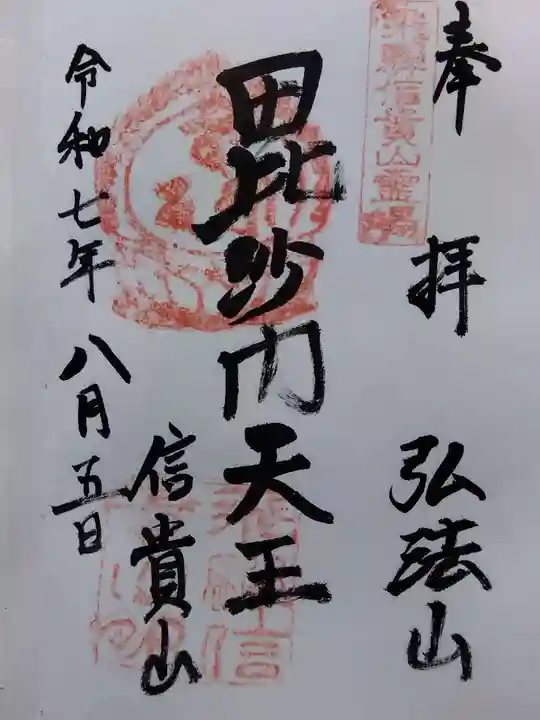 奉拝 弘法山
毘沙門天王
信貴山
令和七年八月五日
信貴山霊場